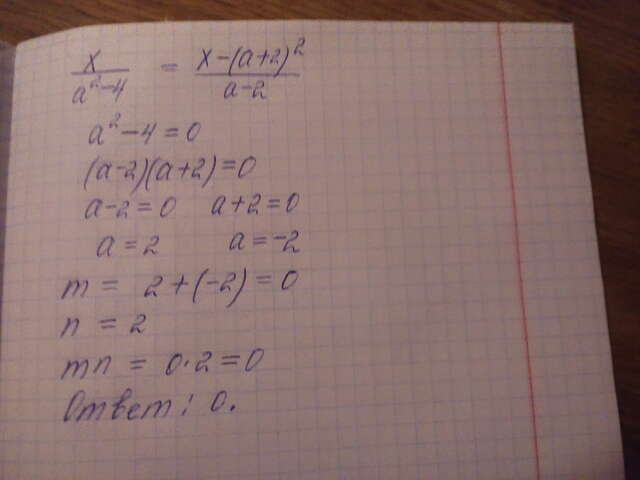 x/(a²-4) = (x-(a+2)²)/(a-2)
a²-4=0
(a-2)(a+2)=0
a-2=0 a+2=0
a=2 a=-2
m = 2+(-2)=0
n = 2
mn = 0·2=0
Ответ: 0.